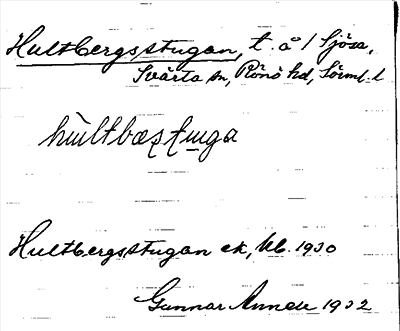 Hultbergsstugan, t. å / Sjösa,
Svärta sn, Rönö hd, Sörml. l
hultbæʂʈuga
Hultbergsstugan ek, kb. 1930
Gunnar Annell 1932